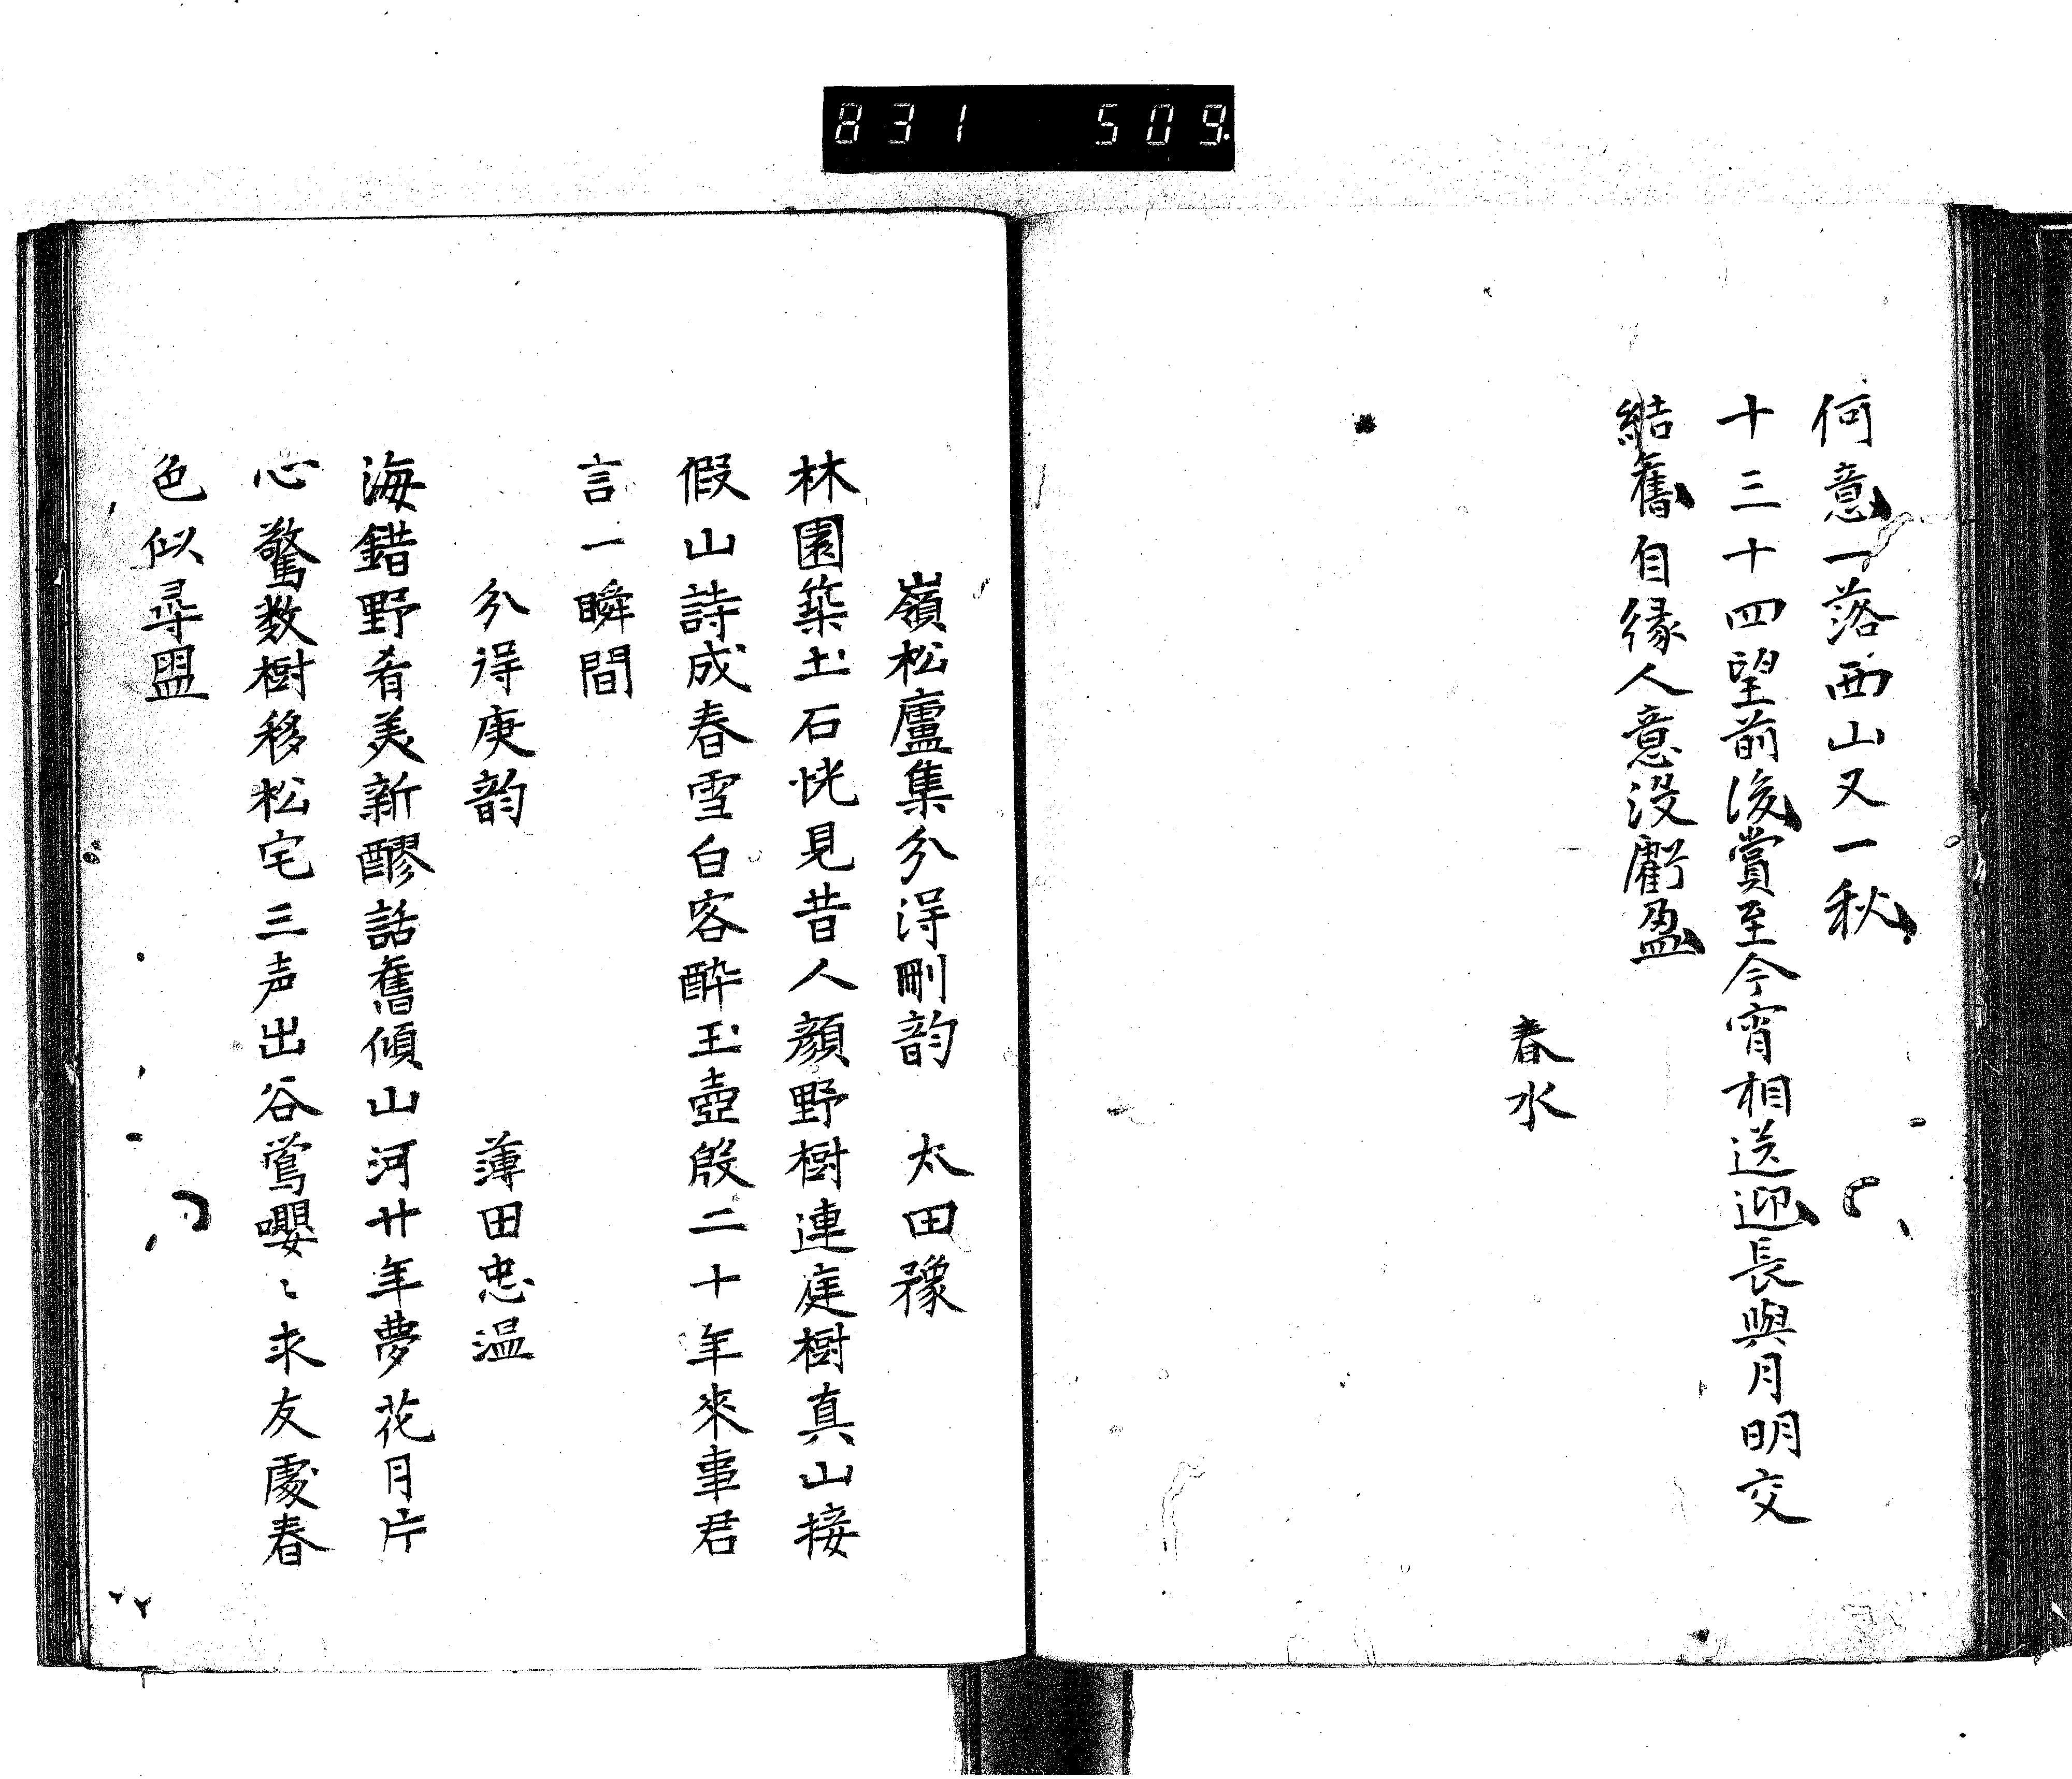 831 509
何意一落西山又一秋
十三十四望前後賞至今宵相送迎長與月明交
結舊自縁人意没虧盈
春水
嶺松廬集分得刪韵 太田豫
林園築土石恍見昔人顔野樹連庭樹真山接
假山詩成春雪白客酔玉壺殷二十年來事君
言一瞬間
分得庚韵 薄田忠温
海錯野肴美新醪話舊傾山河廿年夢花月片
心驚数樹移松宅三声出谷鶯嚶〻求友處春
色似尋盟